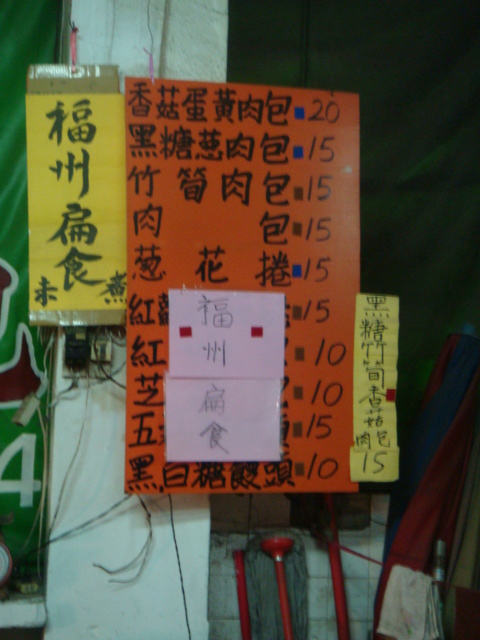 福州扁食
未煮
香菇蛋黃肉包 20
黑糖蔥肉包 15
竹筍肉包 15
肉包 15
葱花捲 15
紅 15
紅 10
芝 10
五 15
黑.白糖饅頭 10
福州
扁食
黑糖竹筍香菇肉包
15
4